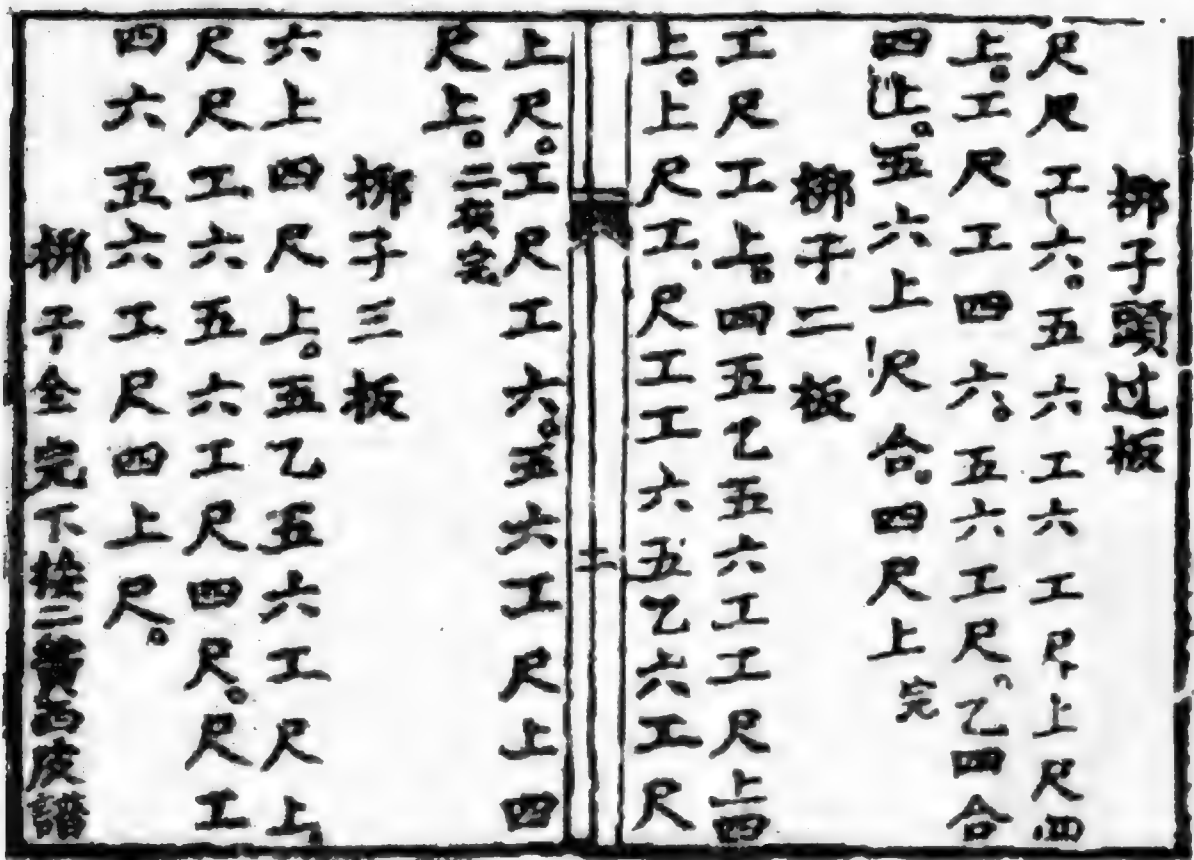 梆子頭过板
尺尺工六。五六工六工尺上尺四
上。工尺工四六。五六工尺。乙四合
四上。五六上尺合。四尺上 完
梆子二板
工尺工上。四五乙五六工工尺上四
上。上尺工、尺工工六五乙六工尺
二
上尺。工尺工六。五六工尺上四
尺上。二板完
梆子三板
六上四尺上。五乙五六工尺上。
尺尺工六五六工尺四尺。尺工
四六五六工尺四上尺。
梆子全完下接二簧西皮譜